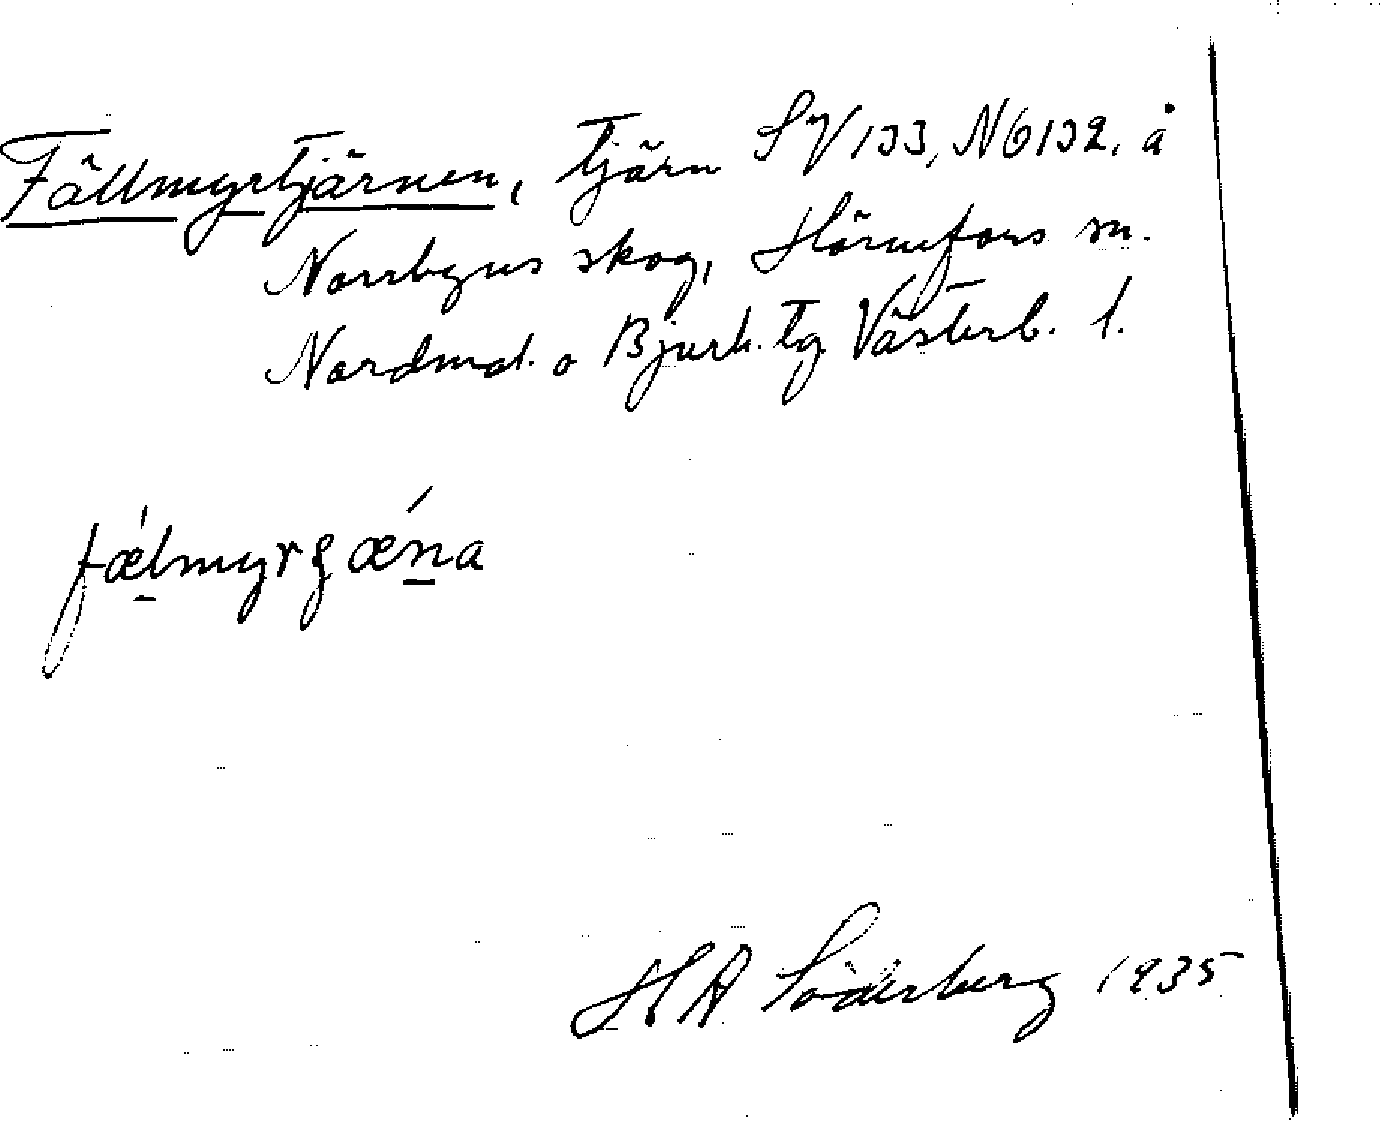 Fällmyrtjärnen, tjärn SV133, N6132. å
Norrbyns skog, Hörnefors sn.
Nordmal. o Bjurh. tg Västerb. l.
fǽlmyrʒǽna
H A Söderberg 1935